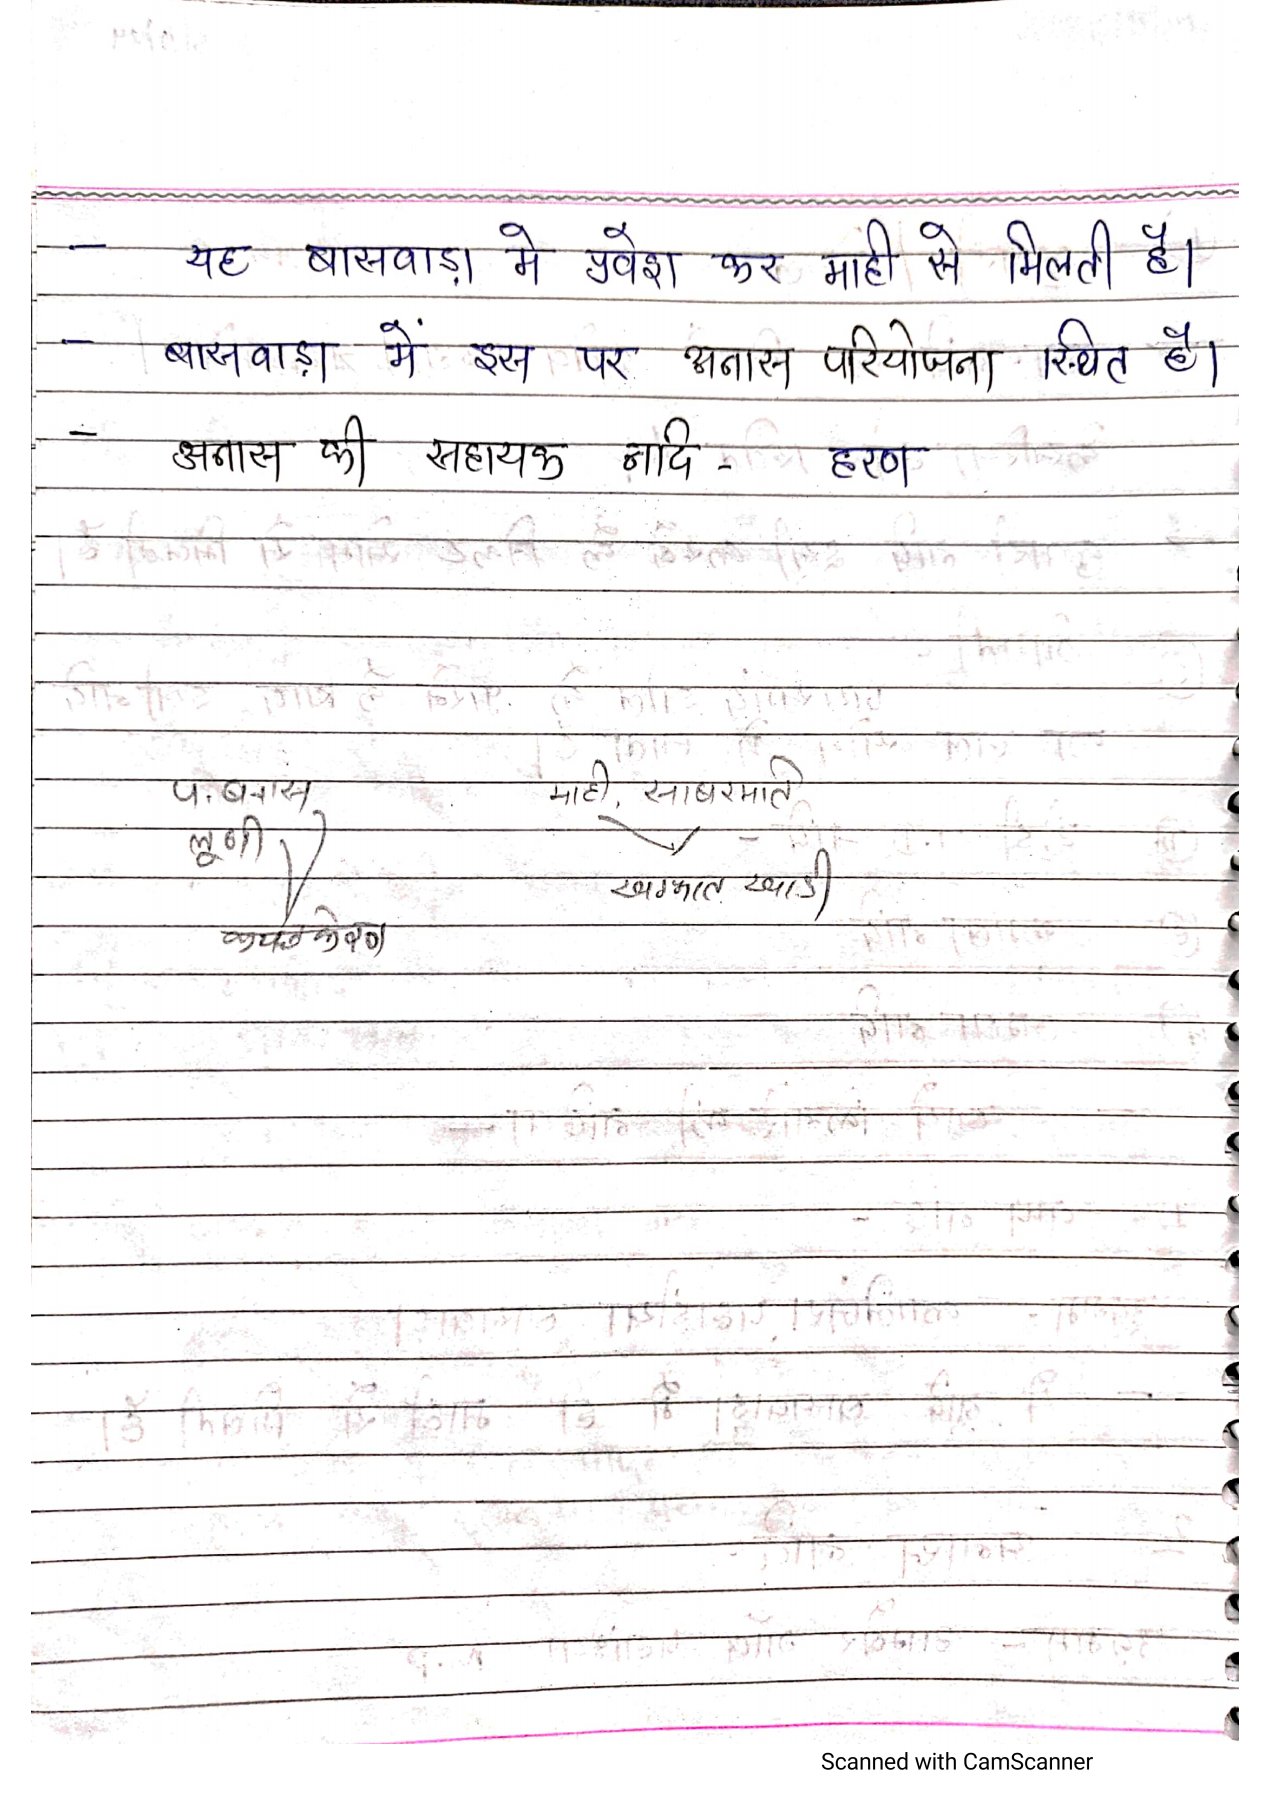 - यह बासवाड़ा मे प्रवेश कर माही से मिलती है।
- बासवाड़ा में इस पर अनास परियोजना स्थित है।
- अनास की सहायक नदि - हरण
प. बनास माही, साबरमति
लूणी
खम्भात खाडी
Scanned with CamScanner